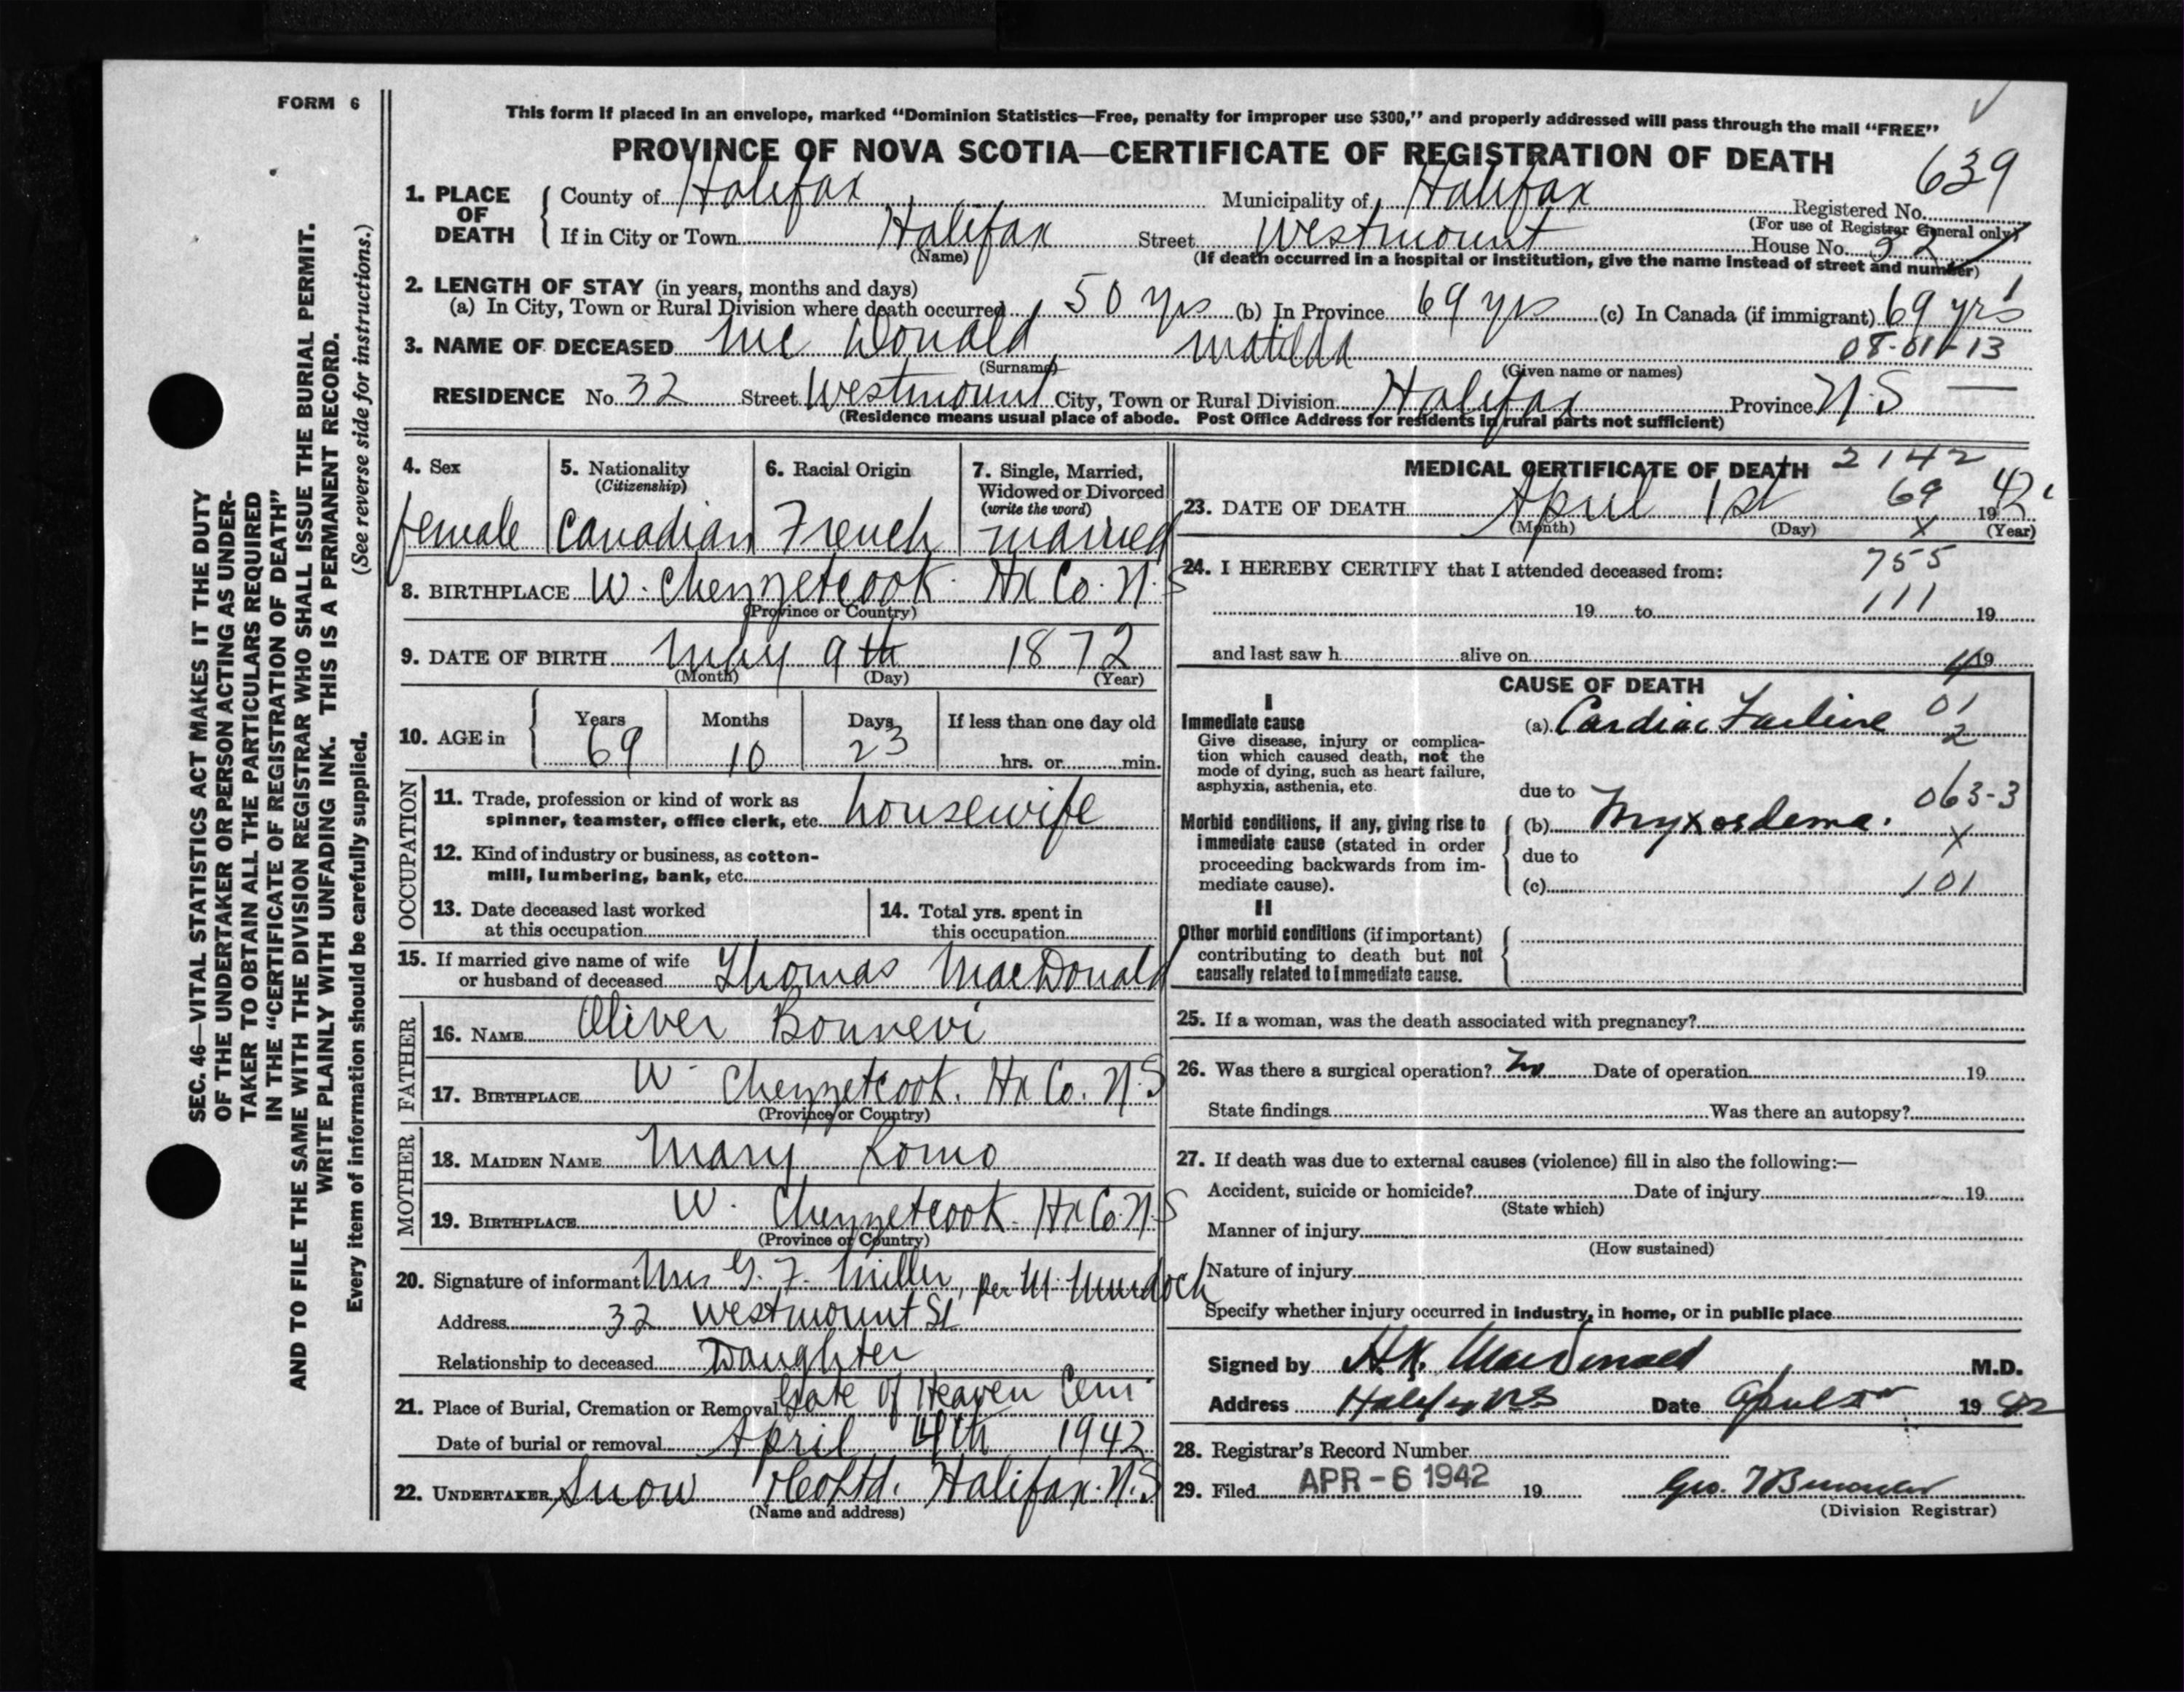 FORM 6
SEC. 46—VITAL STATISTICS ACT MAKES IT THE DUTY
OF THE UNDERTAKER OR PERSON ACTING AS UNDER-
TAKER TO OBTAIN ALL THE PARTICULARS REQUIRED
IN THE "CERTIFICATE OF REGISTRATION OF DEATH"
AND TO FILE THE SAME WITH THE DIVISION REGISTRAR WHO SHALL ISSUE THE BURIAL PERMIT.
WRITE PLAINLY WITH UNFADING INK. THIS IS A PERMANENT RECORD.
Every item of information should be carefully supplied. (See reverse side for instructions.)
This form if placed in an envelope, marked "Dominion Statistics—Free, penalty for improper use $300," and properly addressed will pass through the mail "FREE"
PROVINCE OF NOVA SCOTIA—CERTIFICATE OF REGISTRATION OF DEATH
639
1. PLACE OF DEATH
County of Halifax Municipality of Halifax Registered No.
(For use of Registrar General only)
If in City or Town Halifax Street Westmount House No. 32
(Name) (If death occurred in a hospital or institution, give the name instead of street and number)
2. LENGTH OF STAY (in years, months and days)
(a) In City, Town or Rural Division where death occurred 50 yrs (b) In Province 69 yrs (c) In Canada (if immigrant) 69 yrs
3. NAME OF DECEASED Mc Donald Matilda 08-01-13
(Surname) (Given name or names)
RESIDENCE No. 32 Street Westmount City, Town or Rural Division Halifax Province N.S
(Residence means usual place of abode. Post Office Address for residents in rural parts not sufficient)
4. Sex
female
5. Nationality
(Citizenship)
Canadian
6. Racial Origin
French
7. Single, Married,
Widowed or Divorced
(write the word)
married
8. BIRTHPLACE W. Chezzetcook. Hx Co. N.S
(Province or Country)
9. DATE OF BIRTH May 9th 1872
(Month) (Day) (Year)
10. AGE in
Years 69
Months 10
Days 23
If less than one day old
hrs. or min.
OCCUPATION
11. Trade, profession or kind of work as
spinner, teamster, office clerk, etc. housewife
12. Kind of industry or business, as cotton-
mill, lumbering, bank, etc.
13. Date deceased last worked
at this occupation
14. Total yrs. spent in
this occupation
15. If married give name of wife
or husband of deceased Thomas MacDonald
FATHER
16. NAME Oliver Bonnevi
17. BIRTHPLACE W. Chezzetcook. Hx Co. N.S
(Province or Country)
MOTHER
18. MAIDEN NAME Mary Romo
19. BIRTHPLACE W. Chezzetcook. Hx Co. N.S
(Province or Country)
20. Signature of informant Mrs G. F. Miller, per M. Murdoch
Address 32 Westmount St
Relationship to deceased Daughter
21. Place of Burial, Cremation or Removal Gate of Heaven Cem
Date of burial or removal April 4th 1942
22. UNDERTAKER Snow & Co Ltd. Halifax. N.S
(Name and address)
MEDICAL CERTIFICATE OF DEATH 2142
69
23. DATE OF DEATH April 1st 1942
(Month) (Day) X (Year)
24. I HEREBY CERTIFY that I attended deceased from: 755
19 to 111 19
and last saw h alive on 19
CAUSE OF DEATH
I
Immediate cause
Give disease, injury or complica-
tion which caused death, not the
mode of dying, such as heart failure,
asphyxia, asthenia, etc.
(a) Cardiac Failure 01
2
due to 063-3
Morbid conditions, if any, giving rise to
immediate cause (stated in order
proceeding backwards from im-
mediate cause).
(b) Myxoedema. X
due to
(c) 101
II
Other morbid conditions (if important)
contributing to death but not
causally related to immediate cause.
25. If a woman, was the death associated with pregnancy?
26. Was there a surgical operation? No Date of operation 19
State findings Was there an autopsy?
27. If death was due to external causes (violence) fill in also the following:—
Accident, suicide or homicide? Date of injury 19
(State which)
Manner of injury
(How sustained)
Nature of injury
Specify whether injury occurred in industry, in home, or in public place
Signed by H.K. MacDonald M.D.
Address Halifax NS Date April 1942
28. Registrar's Record Number
29. Filed APR - 6 1942 19 Geo.
(Division Registrar)